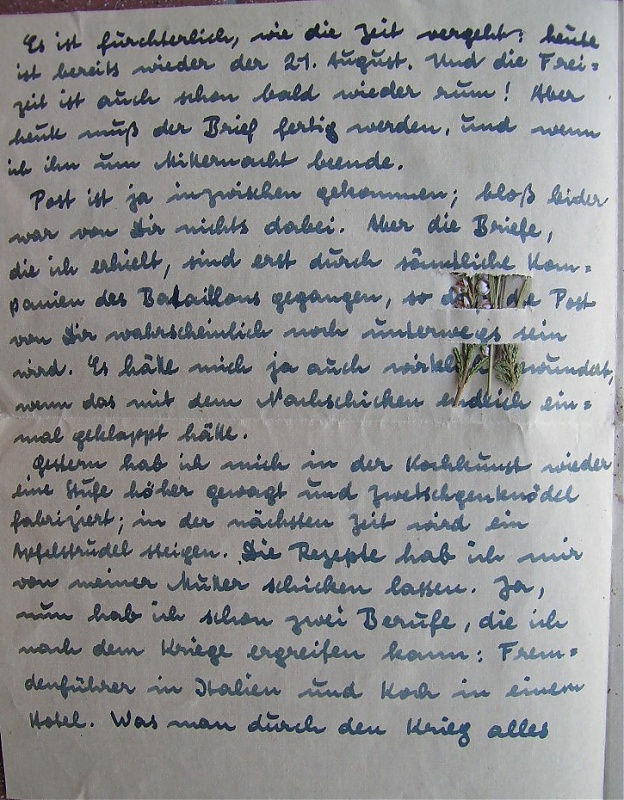 Es ist fürchterlich, wie die Zeit vergeht: heute
ist bereits wieder der 21. August. Und die Frei=
zeit ist auch schon bald wieder rum! Aber
heute muß der Brief fertig werden, und wenn
ich ihn um Mitternacht beende.
Post ist ja inzwischen gekommen; bloß leider
war von Dir nichts dabei. Aber die Briefe,
die ich erhielt, sind erst durch sämtliche Kom=
panien des Bataillons gegangen, so die Post
von Dir wahrscheinlich noch unterwegs sein
wird. Es hätte mich ja auch
wenn das mit dem Nachschicken endlich ein=
mal geklappt hätte.
Gestern hab ich mich in der Kochkunst wieder
eine Stufe höher gewagt und Zwetschgenknödel
fabriziert; in der nächsten Zeit wird ein
Apfelstrudel steigen. Die Rezepte hab ich mir
von meiner Mutter schicken lassen. Ja,
nun hab ich schon zwei Berufe, die ich
nach dem Kriege ergreifen kann: Frem=
denführer in Italien und Koch in einem
Hotel. Was man durch den Krieg alles